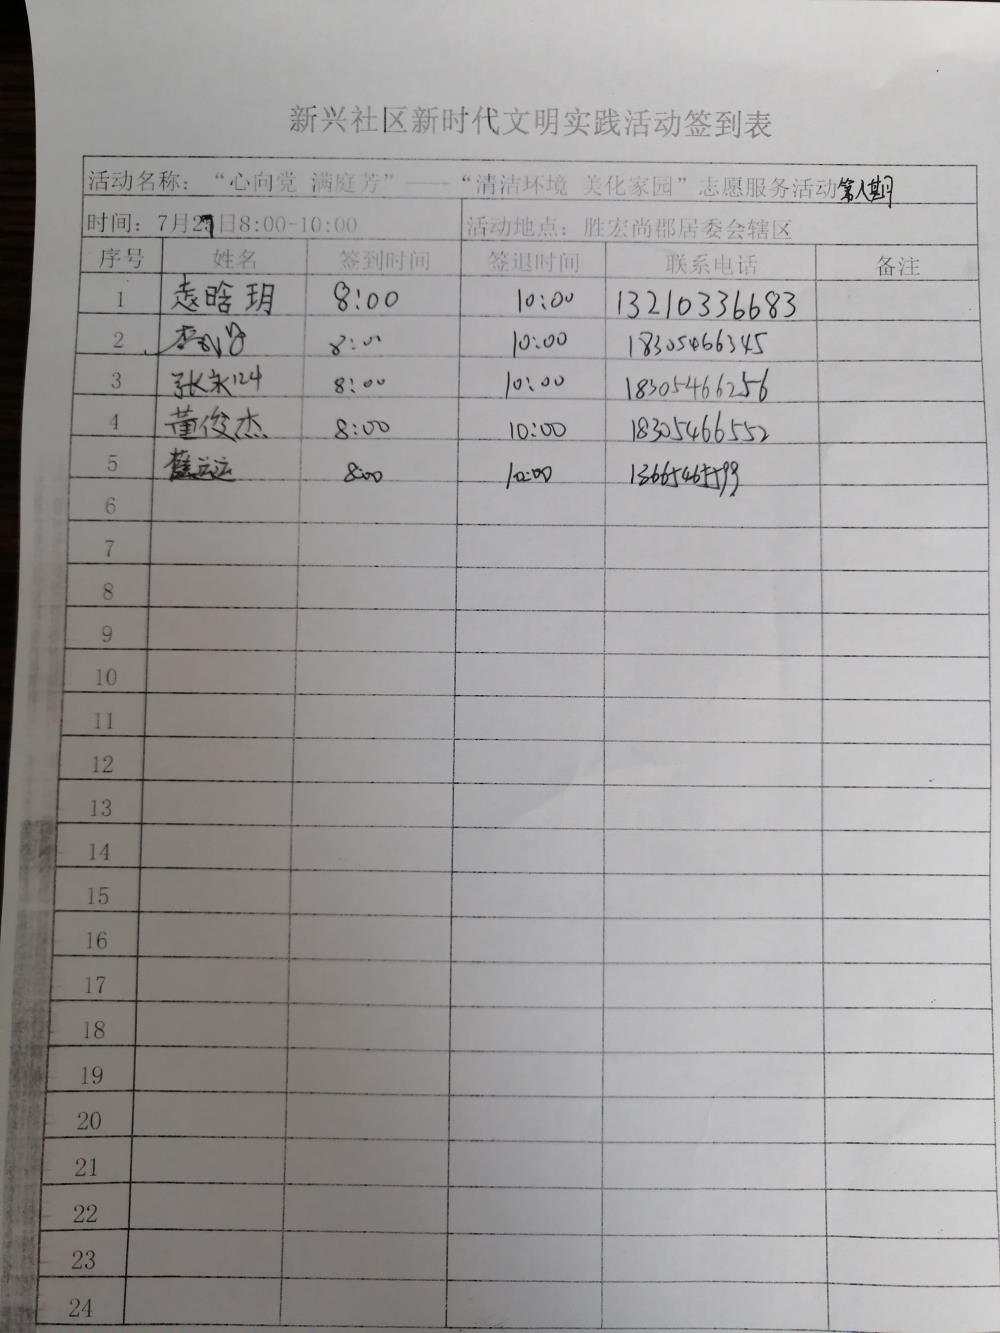 新兴社区新时代文明实践活动签到表
活动名称：“心向党 满庭芳”——“清洁环境 美化家园”志愿服务活动第八期
时间：7月29日8:00-10:00 活动地点：胜宏尚郡居委会辖区
序号 姓名 签到时间 签退时间 联系电话 备注
1 袁晗玥 8:00 10:00 13210336683
2 8:00 10:00 18305466345
3 8:00 10:00 18305466256
4 董俊杰 8:00 10:00 18305466552
5 8:00 10:00
6
7
8
9
10
11
12
13
14
15
16
17
18
19
20
21
22
23
24